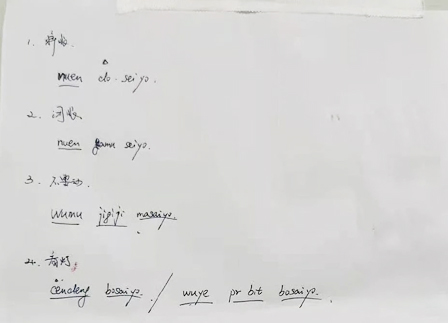 1. 睁眼
nuen do seiyo.
2. 闭眼
nuen gamu seiyo.
3. 不要动.
wumu jigiji masaiyo.
4. 看灯
cendeng bosaiyo. / wuye pr bit bosaiyo.